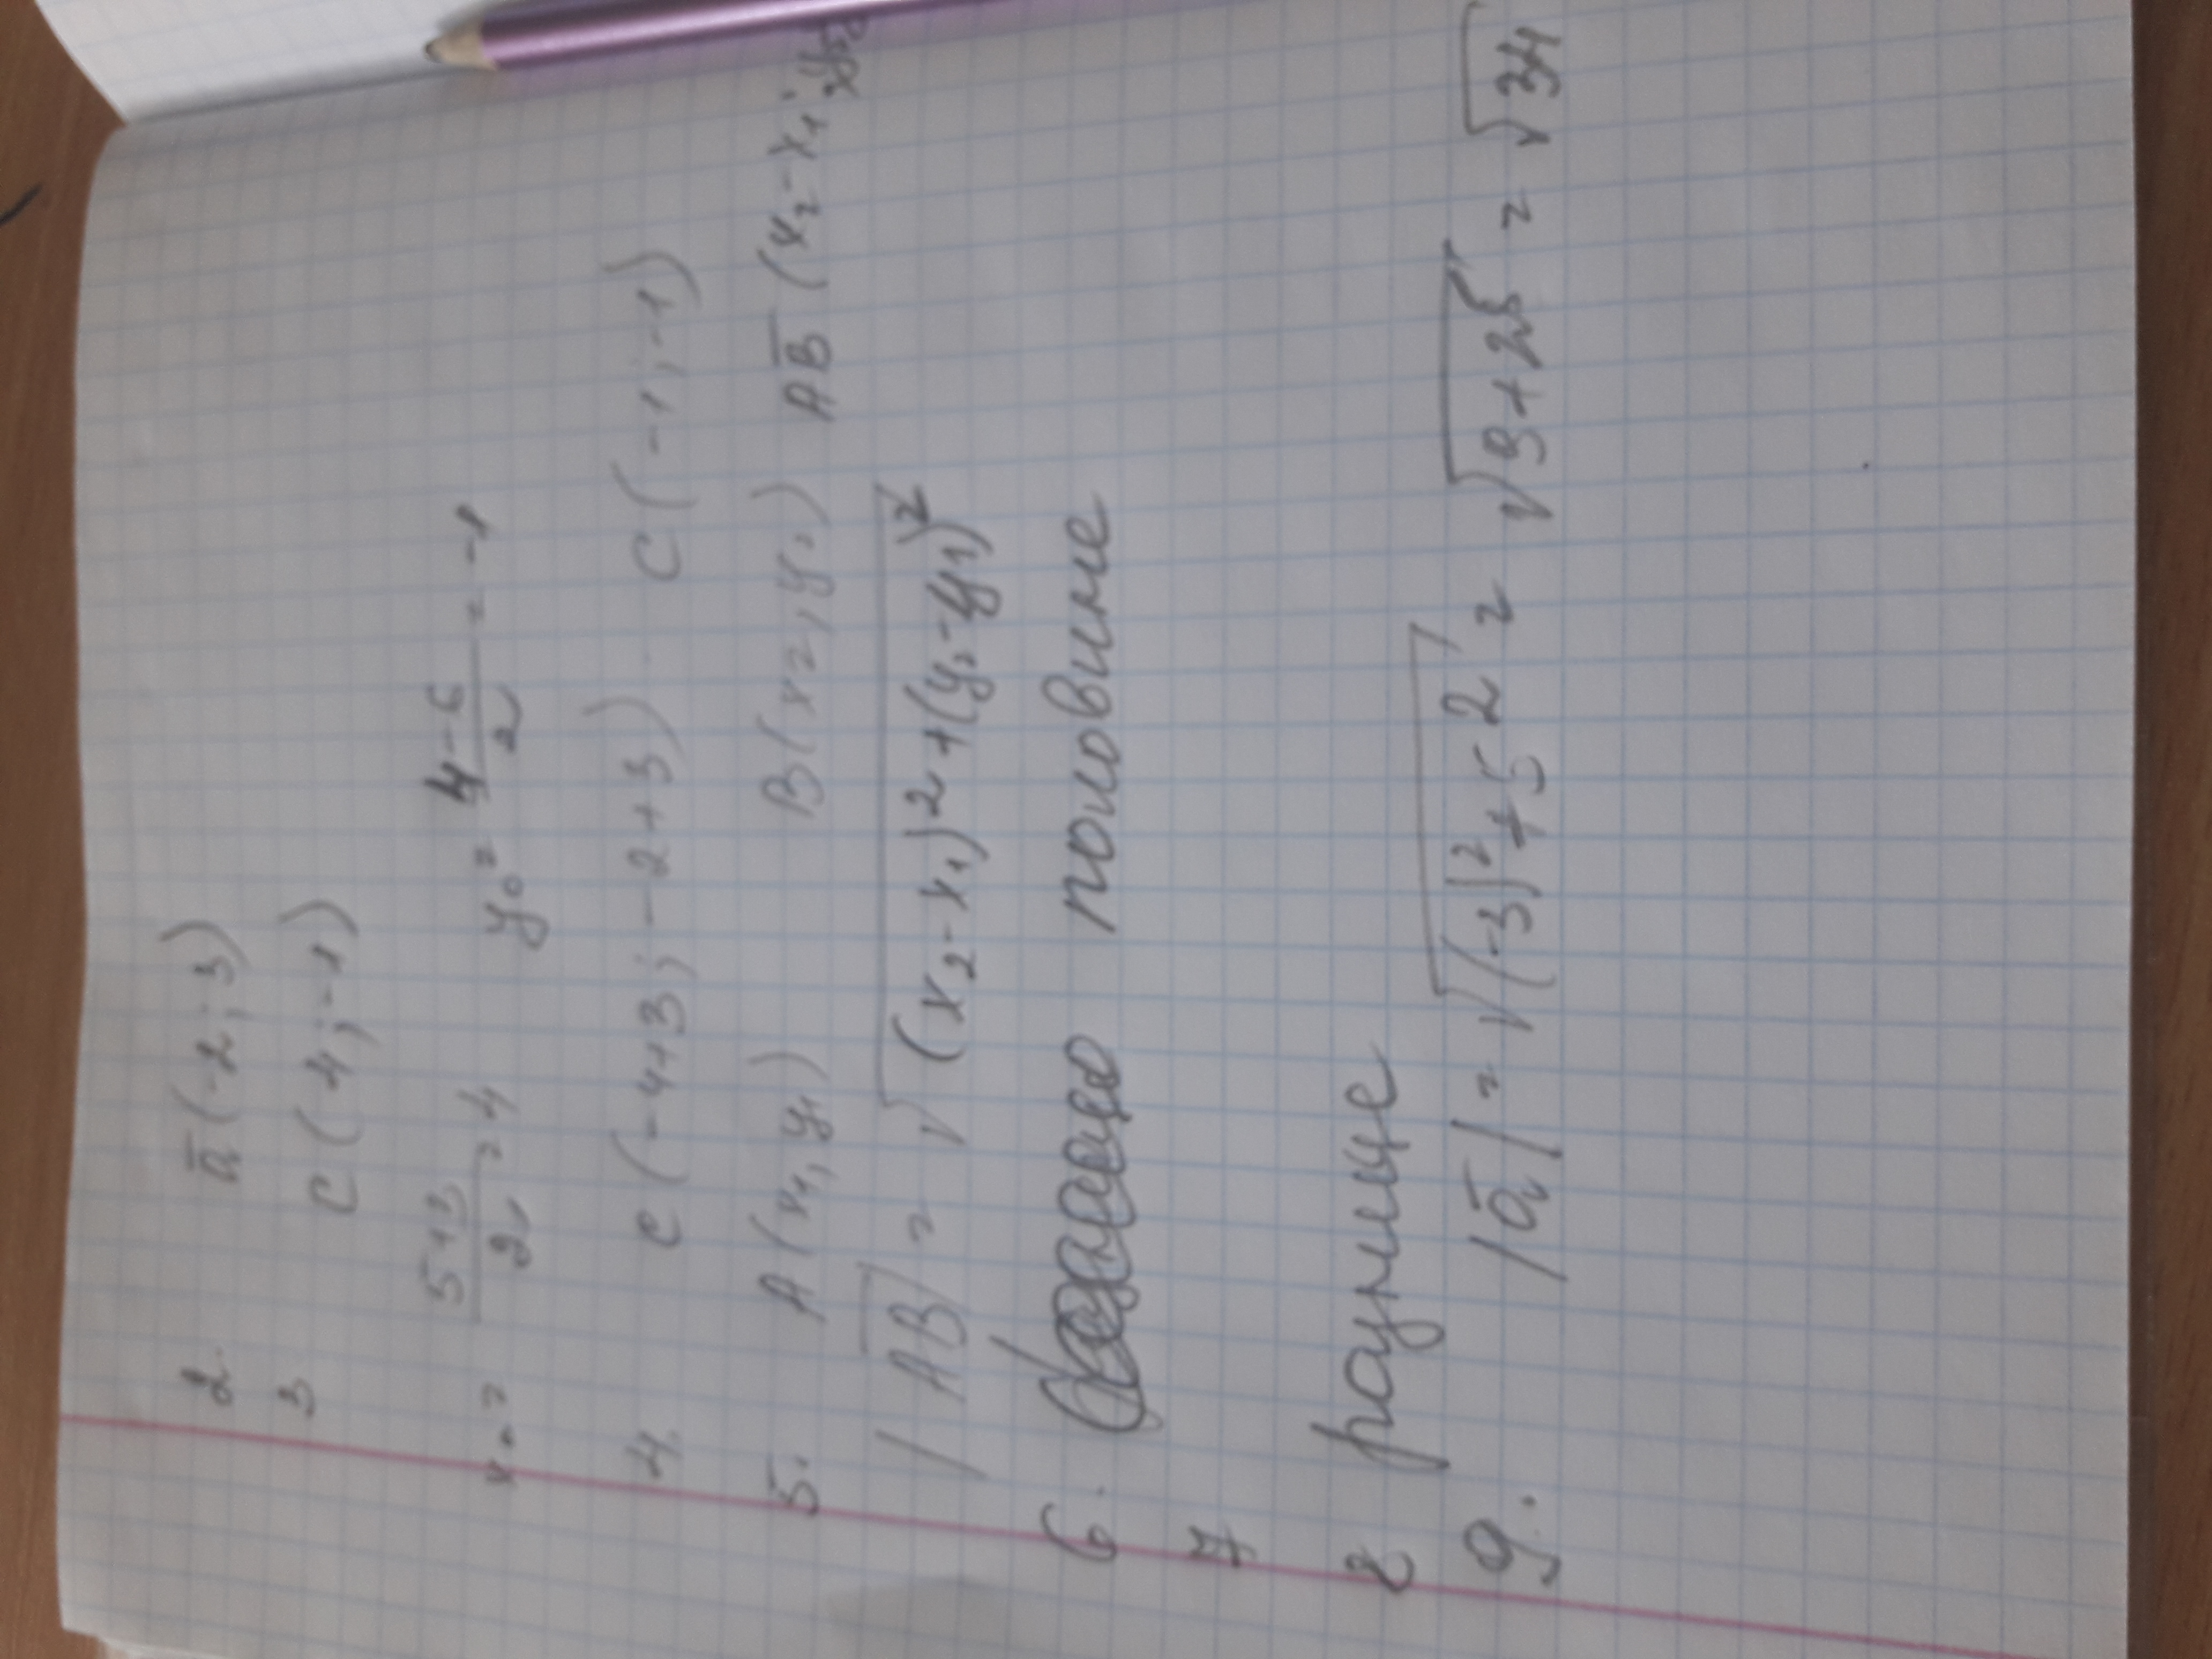 2. a̅ (-2; 3)
3 C (4; -1)
x₀ = \frac{5+3}{2} = 4 y₀ = \frac{4-6}{2} = -1
4. C (-4+3; -2+3) C (-1; -1)
5. A (x₁, y₁) B (x₂, y₂) A̅B̅ (x₂-x₁;
|A̅B̅| = √((x₂-x₁)²+(y₂-y₁)²)
6. половине
7
8 разнице
9. |a̅| = √((-3)²+5²) = √(9+25) = √34